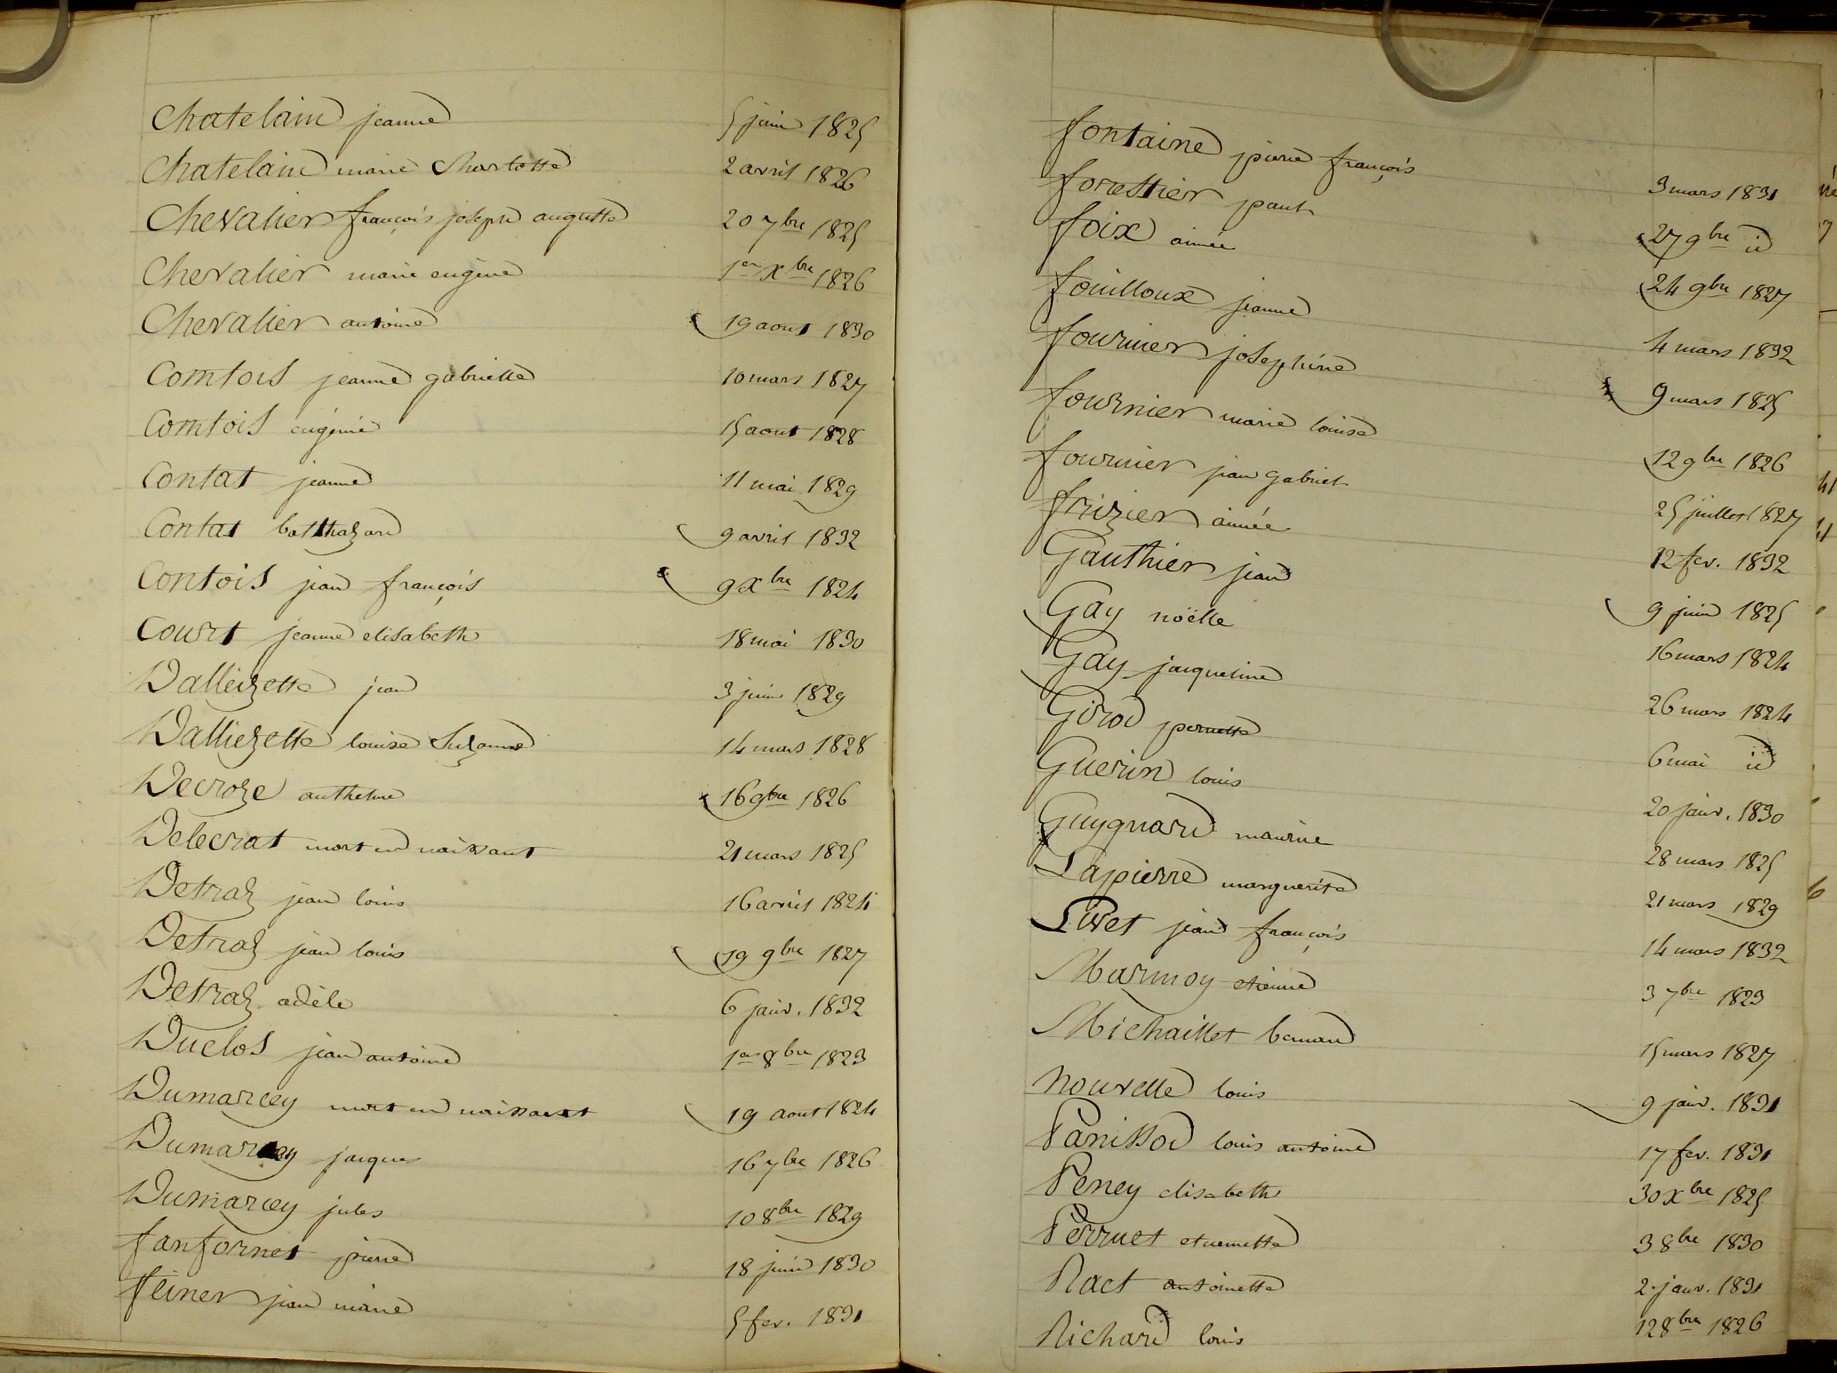 Chatelain jeanne 5 juin 1825
Chatelain marie Charlotte 2 avril 1826
Chevalier françois joseph auguste 20 7bre 1825
Chevalier marie eugene 1er Xbre 1826
Chevalier antoine 19 aout 1830
Comtois jeanne gabrielle 10 mars 1827
Comtois eugénie 15 aout 1828
Contat jeanne 11 mai 1829
Contat balthazard 9 avril 1832
Contois jean françois 9 Xbre 1824
Court jeanne elisabeth 18 mai 1830
Dalleizette jean 3 juin 1829
Dalliezette louise Suzanne 14 mars 1828
Decroze anthelme 16 9bre 1826
Delecrat mort en naissant 21 mars 1825
Detraz jean louis 16 avril 1824
Detraz jean louis 19 9bre 1827
Detraz adèle 6 janv. 1832
Duclos jean antoine 1er 8bre 1823
Dumarcey mort en naissant 19 aout 1824
Dumarcey jacques 16 7bre 1826
Dumarcey jules 10 8bre 1829
fanfornet pierre 18 juin 1830
feiner jean marie 5 fev. 1831
fontaine pierre françois 3 mars 1831
forestier paul 27 9bre id
foix aimée 24 9bre 1827
fouilloux jeanne 4 mars 1832
fournier josephine 9 mars 1825
fournier marie louise 12 9bre 1826
fournier jean gabriel 25 juillet 1827
frizier aimée 12 fev. 1832
Gauthier jean 9 juin 1825
Gay noëlle 16 mars 1824
Gay jacqueline 26 mars 1824
Girod pernette 6 mai id
Guerin louis 20 janv. 1830
Guygnard maurice 28 mars 1825
Lapierre marguerite 21 mars 1829
Livet jean françois 14 mars 1832
Marmoy etienne 3 7bre 1823
Michaillet bernard 15 mars 1827
Nouvelle louis 9 janv. 1831
Panissod louis antoine 17 fev. 1831
Peney elisabeth 30 Xbre 1825
Perruet etiennette 3 8bre 1830
Ract antoinette 2 janv. 1831
Richard louis 12 8bre 1826